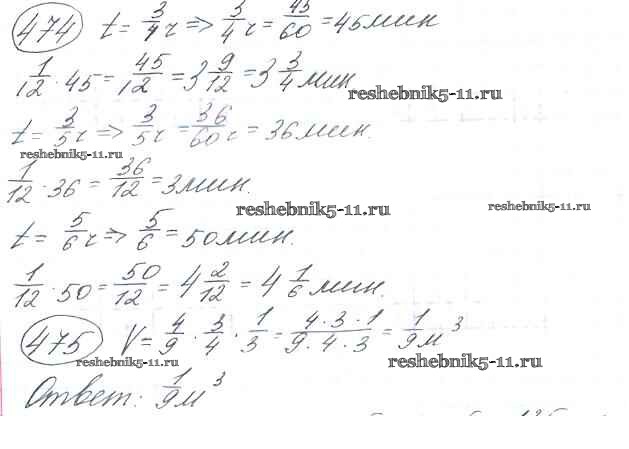 474 t = 3/4 ч => 3/4 ч = 45/60 = 45 мин
1/12 · 45 = 45/12 = 3 9/12 = 3 3/4 мин
reshebnik5-11.ru
t = 3/5 ч => 3/5 ч = 36/60 ч = 36 мин.
reshebnik5-11.ru
1/12 · 36 = 36/12 = 3 мин.
reshebnik5-11.ru
reshebnik5-11.ru
t = 5/6 ч => 5/6 = 50 мин.
1/12 · 50 = 50/12 = 4 2/12 = 4 1/6 мин.
475 V = 4/9 · 3/4 · 1/3 = 4·3·1/9·4·3 = 1/9 м³
reshebnik5-11.ru
reshebnik5-11.ru
Ответ: 1/9 м³